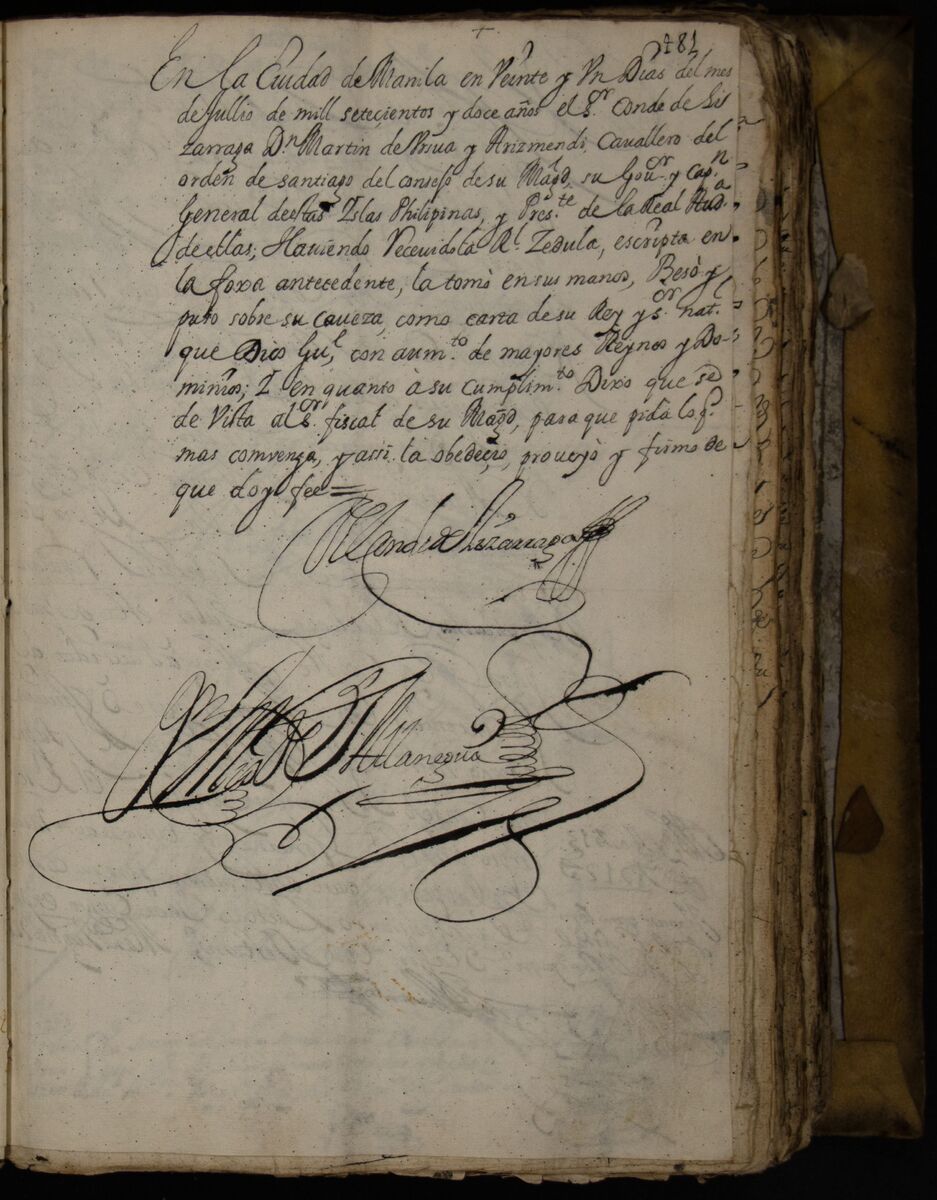 481
+
En la Ciudad de Manila en Veinte y Vn Dias del mes
de Jullio de mill setecientos y doce años el s.or Conde de Lis
zarraga D.n Martin de Vrsua y Arizmendi, Cavallero del
orden de santiago del consejo de su Mag.d su Gou.or y Cap.n
General destas Islas Philipinas, y Pres.te de la Real Aud.a
de ellas; Haviendo Recevido la R.l Zedula, escripta en
la foxa antecedente, la tomò en sus manos, Besò y
puso sobre su caveza, como carta de su Rey y s.or nat.l
que Dios Gu.e con aum.to de mayores Reynos y Do-
minios; Y en quanto à su cumplim.to Dixo que se
de Vista al s.or fiscal de su Mag.d, para que pida lo q.e
mas comvenga, y assi la obedeçio, proueyò y firmo de
que doy fee =
El Conde de Lizarraga
de Villanueva